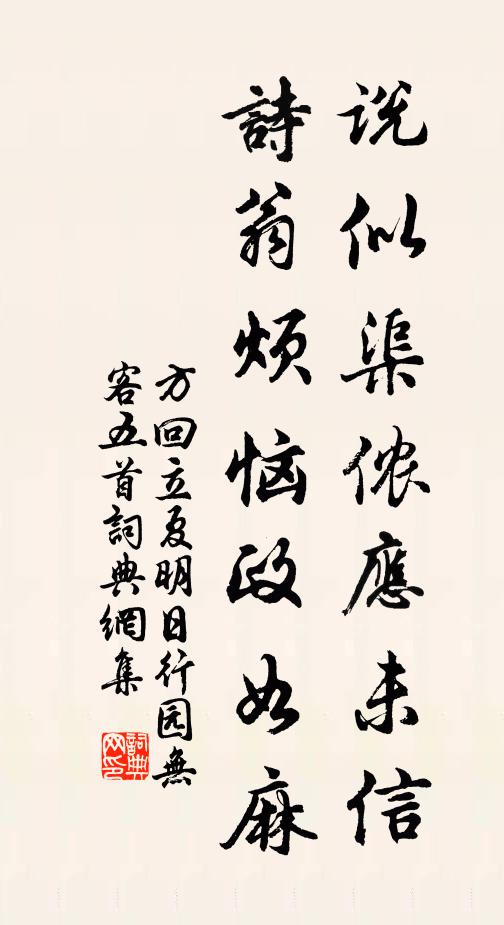 说似渠侬應未信
詩翁烦恼政如麻
方回立夏明日行园無
客五首詞典網集
詞典网印